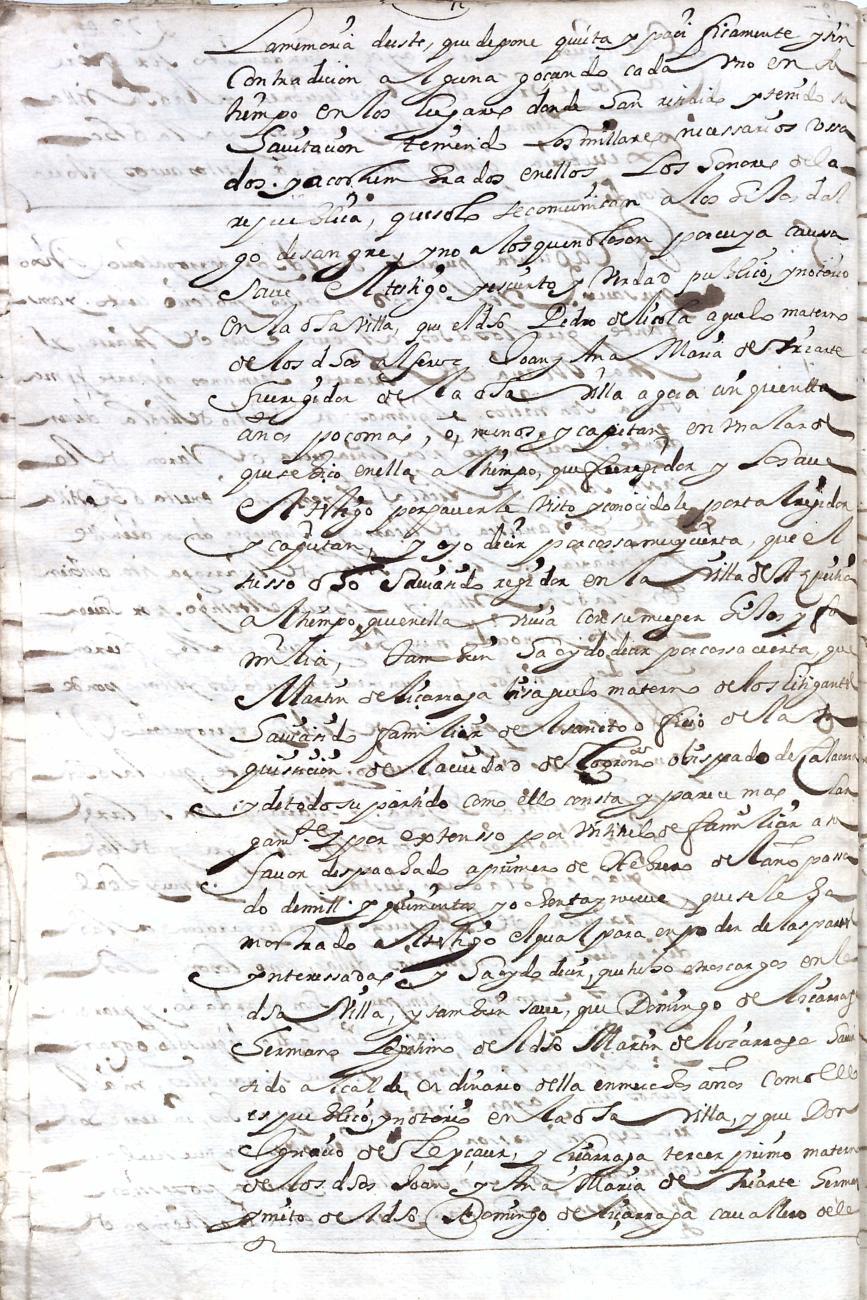 La memoria deeste, que depone quieta y pacificamente y sin
Contradicion alguna goçando cada Vno en su
tiempo en los lugares donde han residido y tenido su
havitacion teniendo los millares necessarios vssa
dos y acostumbrados en ellos Los honores de la
republica, que solo se comunican a los hijos dal
go de sangre, y no a los que no lo son por cuya caussa
save el testigo y es cierto y Verdad publico, y notorio
en la dha Villa, que el dho Pedro de licola aguelo materno
de los dhos alferez Joan y Ana Maria de Yriarte
fue regidor de la dha Villa agora cinquenta
años poco mas, o, menos, y capitan en
que se hiço en ella a tiempo, que fue regidor y lo save
el testigo por haverle Visto y conocidole por tal regidor
y capitan, y oyo decir por cossa muy cierta, que el
susso dho haviendo regidor en la Villa de Azpeitia
a tiempo que en ella Viuia con su muger hijos y fa
milia, tambien ha oydo decir por cossa cierta, que
Martin de liçarraga bisaguelo materno de los litigantes
ha sido familiar del sancto oficio de la In
quisicion de la ciudad de Logroño obispado de Calaorra
y de todo su partido como ello consta y parece mas lar
gamte y por extensso por Vn titulo de familiar a su
favor despachado a primero de febrero del año passa
do de mill y quinientos y ochenta y nueve, que se le ha
mostrado al testigo el qual para en poder de las partes
ynteressadas y ha oydo decir, que tubo otros cargos en la
dha Villa, y tambien save, que Domingo de liçarraga
hermano lexitimo del dho Martin de lizarraga ha si
do alcalde ordinario della en muchos años como ello
es publico, y notorio en la dha Villa, y que Don
Ygnacio de Leyçaur, y liçarraga tercer primo materno
de los dhos Joan, y Ana Maria de Yriarte
y nieto del dho Domingo de liçarraga cavallero de la